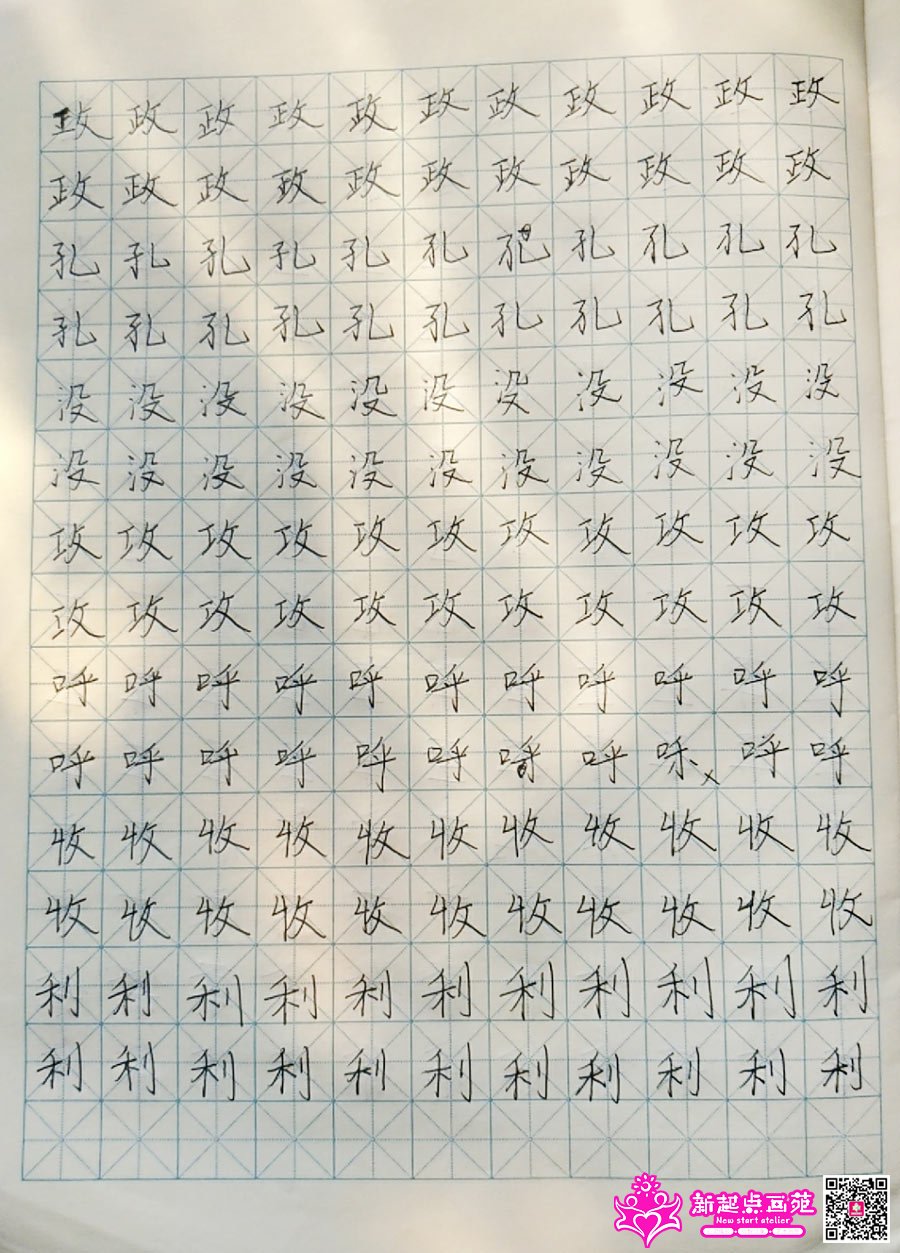 政政政政政政政政政政政
政政政政政政政政政政政
孔孔孔孔孔孔孔孔孔孔
孔孔孔孔孔孔孔孔孔孔孔
没没没没没没没没没没没
没没没没没没没没没没没
攻攻攻攻攻攻攻攻攻攻攻
攻攻攻攻攻攻攻攻攻攻攻
呼呼呼呼呼呼呼呼呼呼呼
呼呼呼呼呼呼呼呼呼呼
收收收收收收收收收收收
收收收收收收收收收收收
利利利利利利利利利利利
利利利利利利利利利利利
新起点画苑
New start atelier